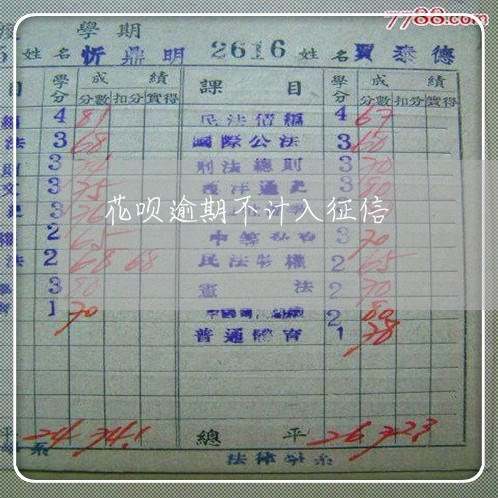 7788.com
學期
姓名 忻鼎明 2616 姓名 賈泰德
目 學分 成績 課目 學分 成績
分數 扣分 實得 分數 扣分 實得
4 81 民法債編 4 67
法 3 68 國際公法 3 60
3 刑法總則 3 70
3 75 西洋通史 3 80
花呗逾期不计入征信
2 65 3 70
法 2 68 68 民法物權 2 65
3 80 憲法 2 70
1 70 2 80
普通體育 1 78
平 24 74.1 總平 26 72.3
系 法律學系